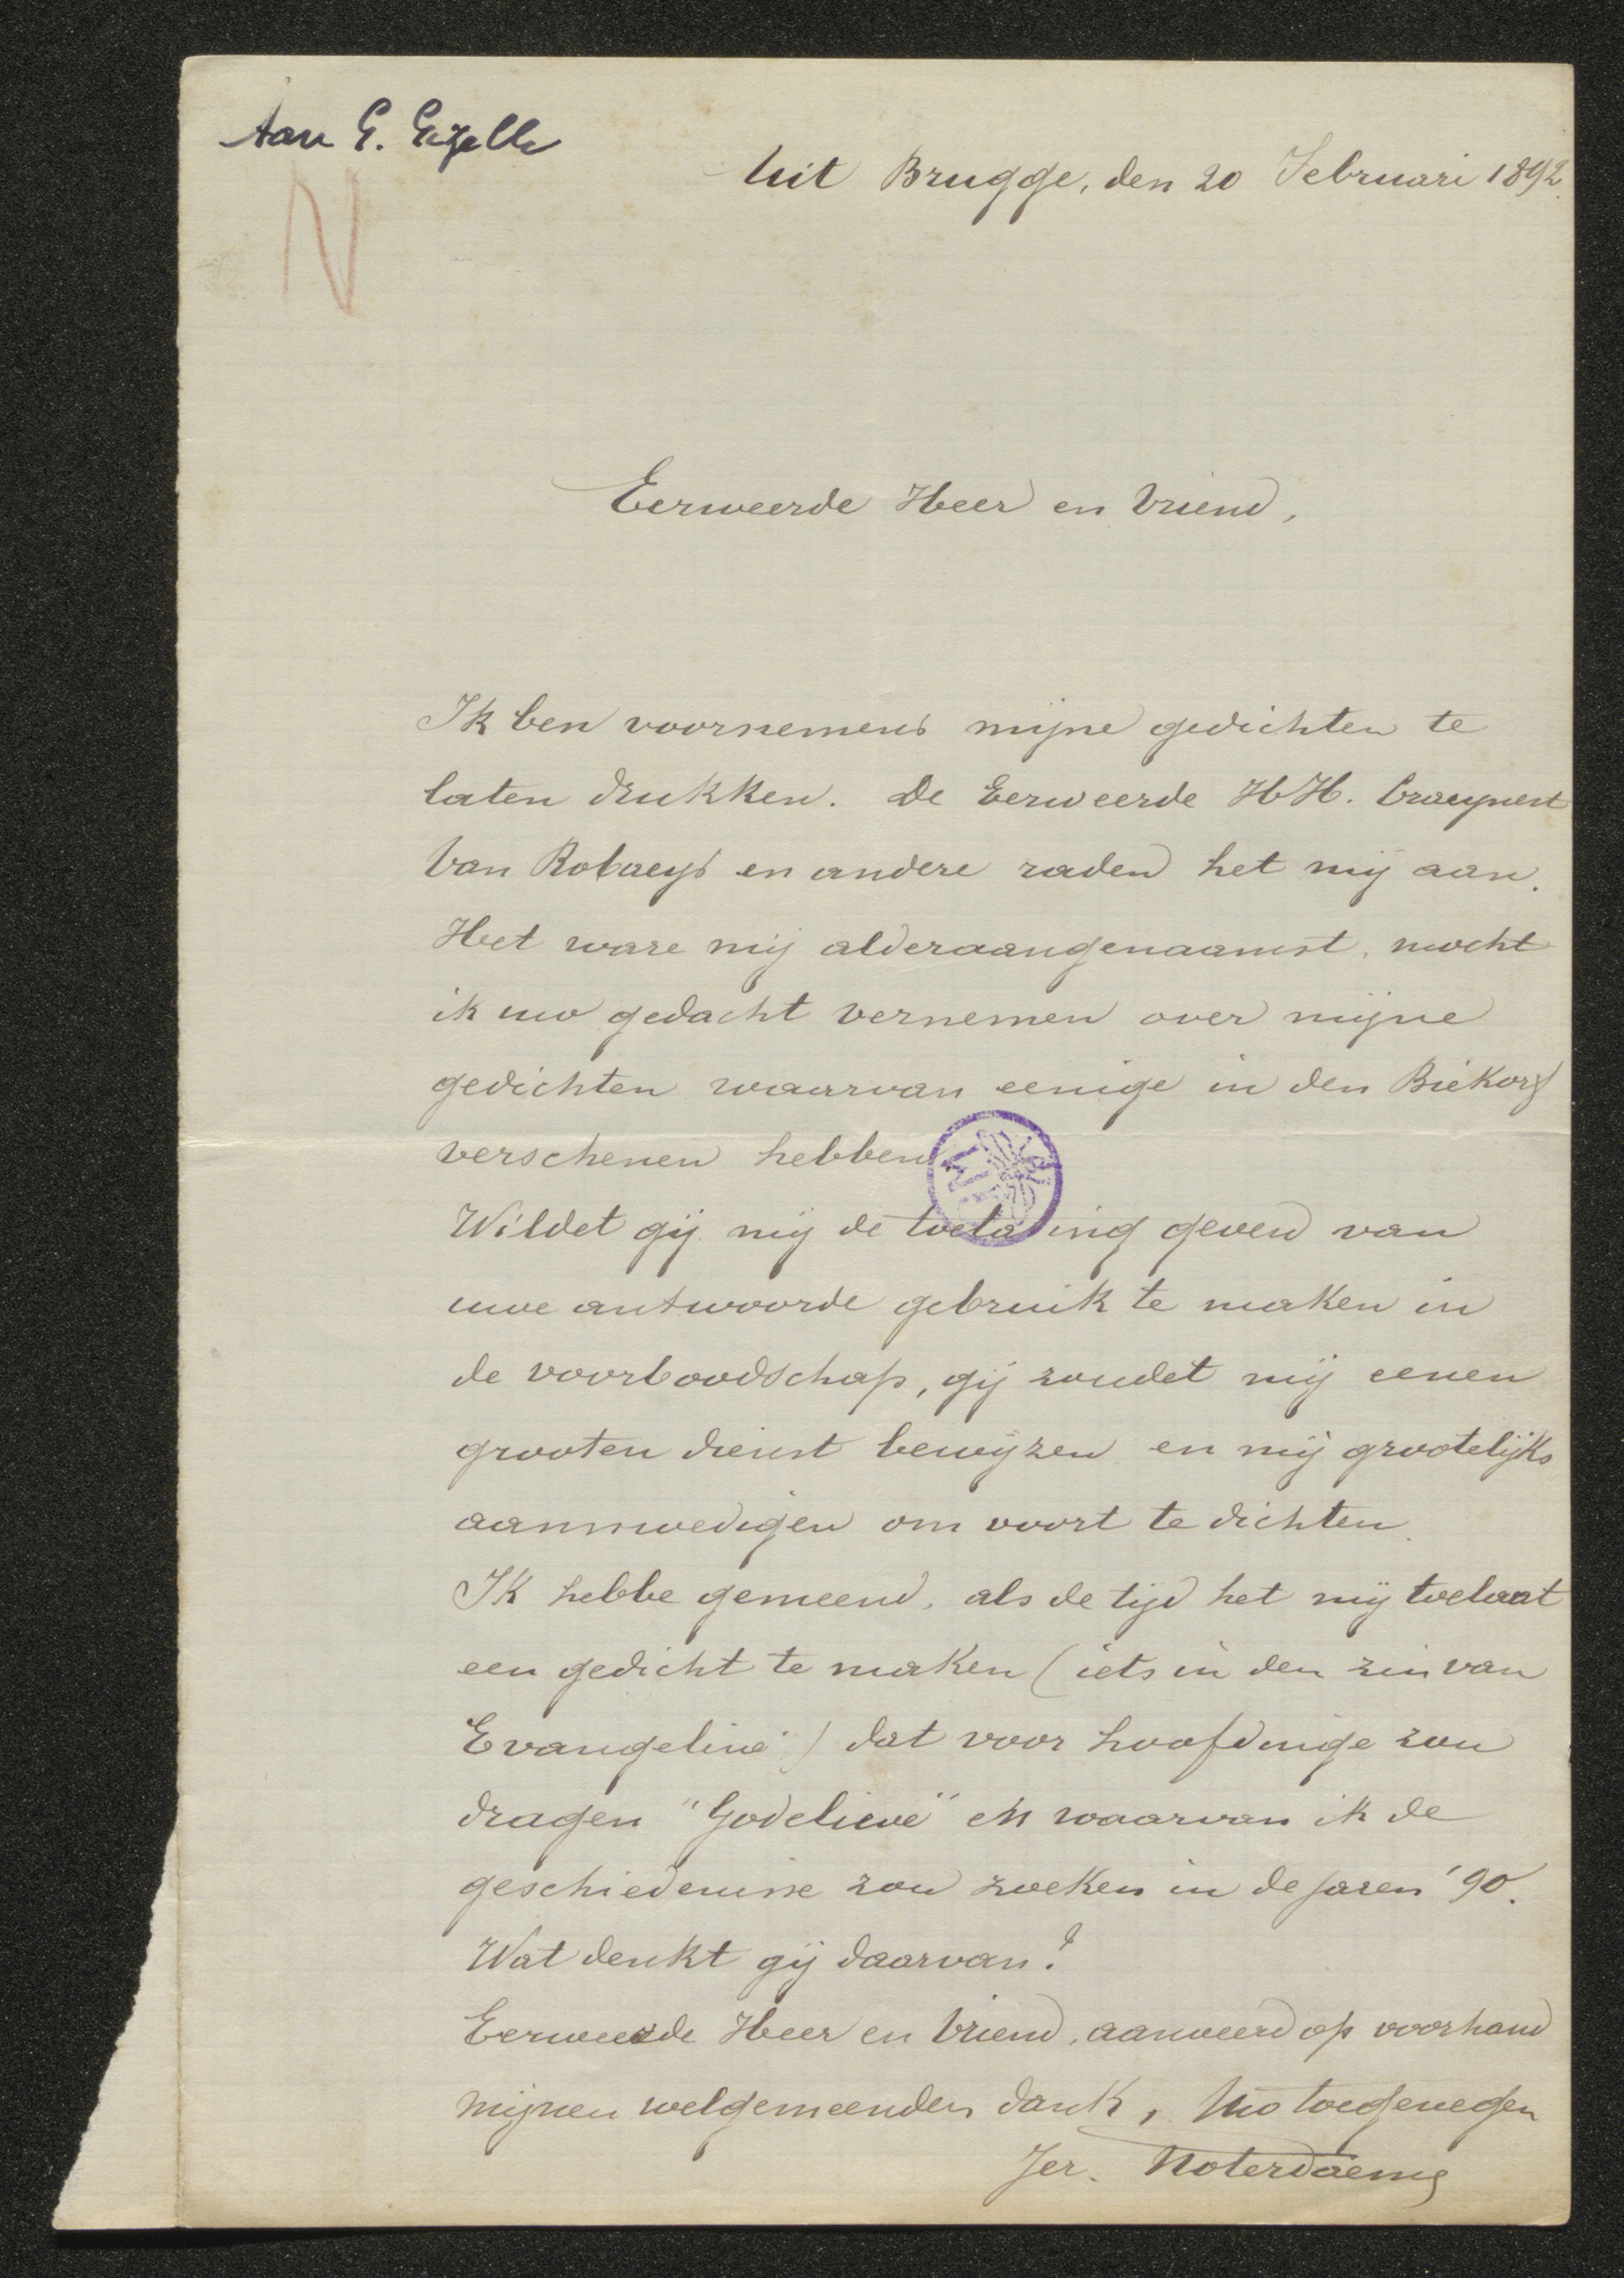 Aan G. Gezelle
N
Uit Brugge, den 20 Februari 1892.
Eerweerde Heer en Vriend,
Ik ben voornemens mijne gedichten te
laten drukken. De Eerweerde HH. Craeynest
Van Robaeys en andere raden het mij aan.
Het ware mij alderaangenaamst, mocht
ik uw gedacht vernemen over mijne
gedichten waarvan eenige in den Biekorf
verschenen hebben
Wildet gij mij de toelating geven van
uwe antwoorde gebruik te maken in
de voorboodschap, gij zoudet mij eenen
grooten dienst bewijzen en mij grootelijks
aanmoedigen om voort te dichten.
Ik hebbe gemeend, als de tijd het mij toelaat
een gedicht te maken (iets in den zin van
Evangeline") dat voor hoofdinge zou
dragen "Godelieve" en waarvan ik de
geschiedenisse zou zoeken in de jaren '90.
Wat denkt gij daarvan?
Eerweerde Heer en Vriend, aanveerd op voorhand
mijnen welgemeenden dank, Uw toegenegen
Jer. Noterdaeme